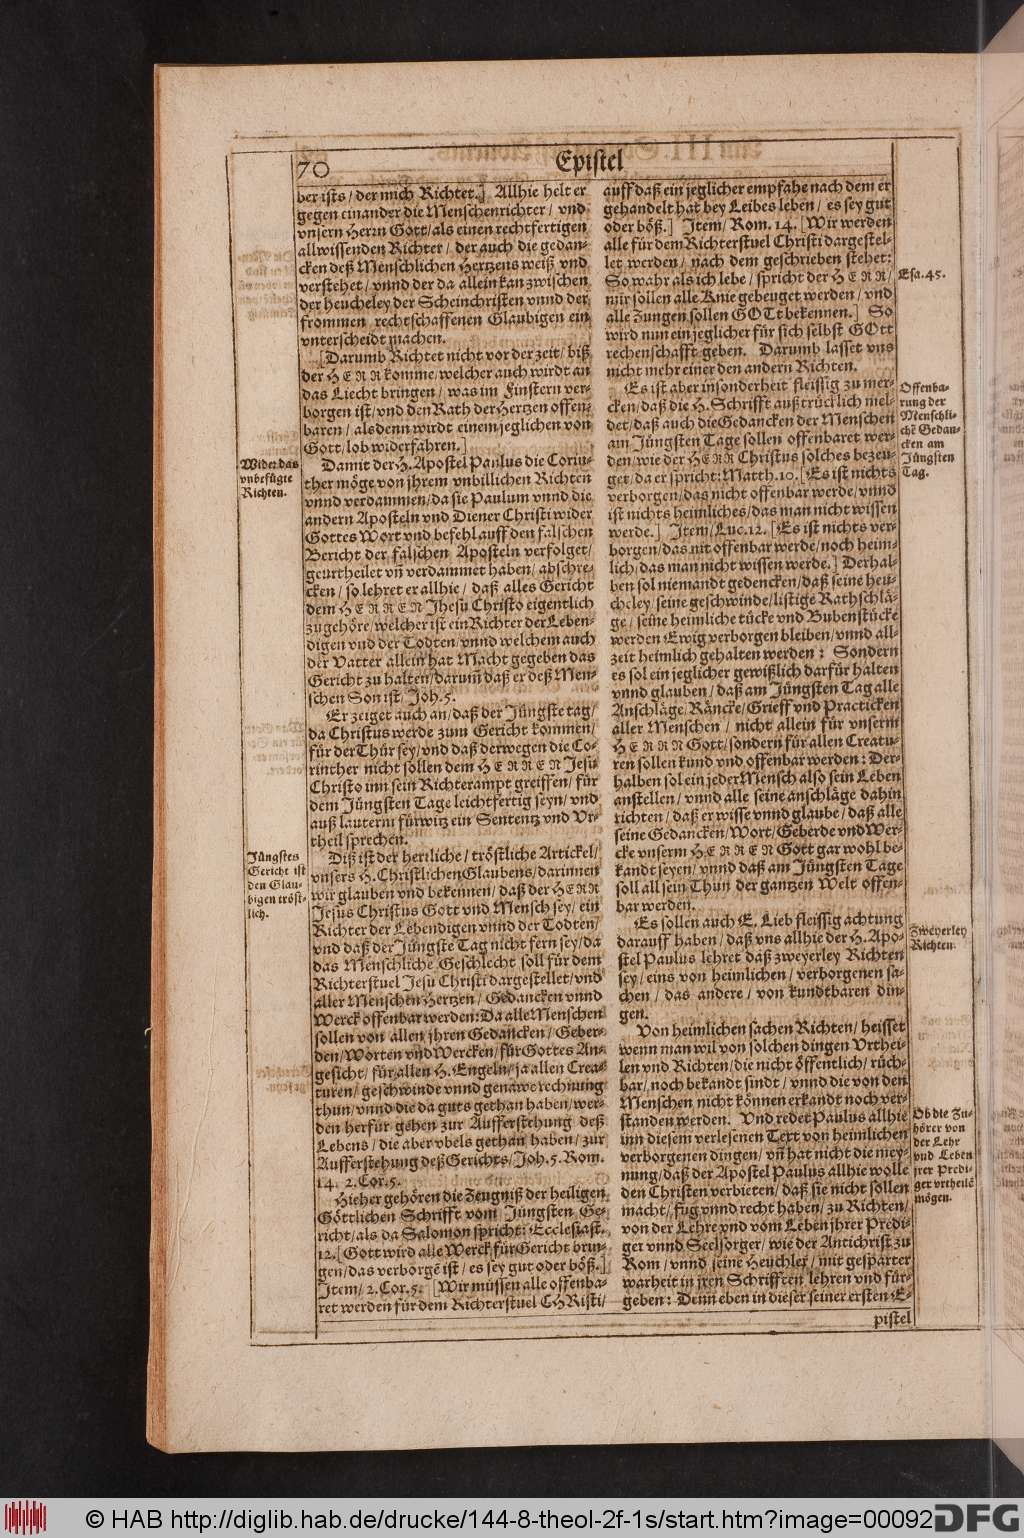 70
Epistel
ber ists / der mich Richtet.] Allhie helt er
gegen einander die Menschenrichter / vnd
vnsern Herrn Gott / als einen rechtfertigen
allwissenden Richter / der auch die gedan-
cken deß Menschlichen Hertzens weiß vnd
verstehet / vnnd der da allein kan zwischen
der heucheley der Scheinchristen vnnd der
frommen rechtschaffenen Glaubigen ein
vnterscheidt machen.
[Darumb Richtet nicht vor der zeit / biß
der HERR komme / welcher auch wirdt an
das Liecht bringen / was im Finstern ver-
borgen ist / vnd den Rath der Hertzen offen-
baren / als denn wirdt einem jeglichen von
Gott / lob widerfahren.]
Wider das
vnbefügte
Richten.
Damit der H. Apostel Paulus die Corin-
ther möge von jhrem vnbillichen Richten
vnnd verdammen / da sie Paulum vnnd die
andern Aposteln vnd Diener Christi wider
Gottes Wort vnd befehl auff den falschen
Bericht der falschen Aposteln verfolget /
geurtheilet vñ verdammet haben / abschre-
cken / so lehret er allhie / daß alles Gericht
dem HERREN Jhesu Christo eigentlich
zugehöre / welcher ist ein Richter der Leben-
digen vnd der Todten / vnnd welchem auch
der Vatter allein hat Macht gegeben das
Gericht zu halten / darumb daß er deß Men-
schen Son ist / Joh. 5.
Er zeiget auch an / daß der Jüngste tag /
da Christus werde zum Gericht kommen /
für der Thür sey / vnd daß derwegen die Co-
rinther nicht sollen dem HERREN Jesu
Christo inn sein Richterampt greiffen / für
dem Jüngsten Tage leichtfertig seyn / vnd
auß lauterm fürwitz ein Sententz vnd Vr-
theil sprechen.
Jüngstes
Gericht ist
den Glau-
bigen tröst-
lich.
Diß ist der herrliche / tröstliche Artickel /
vnsers H. Christlichen Glaubens / darinnen
wir glauben vnd bekennen / daß der HERR
Jesus Christus Gott vnd Mensch sey / ein
Richter der Lebendigen vnnd der Todten /
vnd daß der Jüngste Tag nicht fern sey / da
das Menschliche Geschlecht soll für dem
Richterstuel Jesu Christi dargestellet / vnd
aller Menschen Hertzen / Gedancken vnnd
Werck offenbar werden: Da alle Menschen
sollen von allen jhren Gedancken / Geber-
den / Worten vnd Wercken / für Gottes An-
gesicht / für allen H. Engeln / ja allen Crea-
turen / geschwinde vnnd genawe rechnung
thun / vnnd die da guts gethan haben / wer-
den herfür gehen zur Aufferstehung deß
Lebens / die aber vbels gethan haben / zur
Aufferstehung deß Gerichts / Joh. 5. Rom.
14. 2. Cor. 5.
Hieher gehören die Zeugniß der heiligen
Göttlichen Schrifft vom Jüngsten Ge-
richt / als da Salomon spricht: Ecclesiast.
12. [Gott wird alle Werck für Gericht brin-
gen / das verborgẽ ist / es sey gut oder böß.]
Item / 2. Cor. 5. [Wir müssen alle offenba-
ret werden für dem Richterstuel CHRisti /
auff daß ein jeglicher empfahe nach dem er
gehandelt hat bey Leibes leben / es sey gut
oder böß.] Item / Rom. 14. [Wir werden
alle für dem Richterstuel Christi dargestel-
let werden / nach dem geschrieben stehet:
So wahr als ich lebe / spricht der HERR /
mir sollen alle Knie gebeuget werden / vnd
alle Zungen sollen GOTt bekennen.] So
wird nun ein jeglicher für sich selbst GOtt
rechenschafft geben. Darumb lasset vns
nicht mehr einer den andern Richten.
Esa. 45.
Es ist aber insonderheit fleissig zu mer-
cken / daß die H. Schrifft außtrücklich mel-
det / daß auch die Gedancken der Menschen
am Jüngsten Tage sollen offenbaret wer-
den / wie der HERR Christus solches bezeu-
get / da er spricht: Matth. 10. [Es ist nichts
verborgen / das nicht offenbar werde / vnnd
ist nichts heimliches / das man nicht wissen
werde.] Item / Luc. 12. [Es ist nichts ver-
borgen / das nit offenbar werde / noch heim-
lich / das man nicht wissen werde.] Derhal-
ben sol niemandt gedencken / daß seine heu-
cheley / seine geschwinde / listige Rathschlä-
ge / seine heimliche tücke vnd Bubenstücke
werden Ewig verborgen bleiben / vnnd all-
zeit heimlich gehalten werden: Sondern
es sol ein jeglicher gewißlich darfür halten
vnnd glauben / daß am Jüngsten Tag alle
Anschläge / Räncke / Grieff vnd Practicken
aller Menschen / nicht allein für vnserm
HERRN Gott / sondern für allen Creatu-
ren sollen kund vnd offenbar werden: Der-
halben sol ein jeder Mensch also sein Leben
anstellen / vnnd alle seine anschläge dahin
richten / daß er wisse vnnd glaube / daß alle
seine Gedancken / Wort / Geberde vnd Wer-
cke vnserm HERREN Gott gar wohl be-
kandt seyen / vnnd daß am Jüngsten Tage
soll all sein Thun der gantzen Welt offen-
bar werden.
Offenba-
rung der
Menschli-
chẽ Gedan-
cken am
Jüngsten
Tag.
Es sollen auch E. Lieb fleissig achtung
darauff haben / daß vns allhie der H. Apo-
stel Paulus lehret daß zweyerley Richten
sey / eins von heimlichen / verborgenen sa-
chen / das andere / von kundtbaren din-
gen.
Zweyerley
Richten.
Von heimlichen sachen Richten / heisset
wenn man wil von solchen dingen Vrthei-
len vnd Richten / die nicht öffentlich / rüch-
bar / noch bekandt sindt / vnnd die von den
Menschen nicht können erkandt noch ver-
standen werden. Vnd redet Paulus allhie
inn diesem verlesenen Text von heimlichen
verborgenen dingen / vñ hat nicht die mey-
nung / daß der Apostel Paulus allhie wolle
den Christen verbieten / daß sie nicht sollen
macht / fug vnnd recht haben / zu Richten /
von der Lehre vnd vom Leben jhrer Predi-
ger vnnd Seelsorger / wie der Antichrist zu
Rom / vnnd seine Heuchler / mit gesparter
warheit in jren Schrifften lehren vnd für-
geben: Denn eben in dieser seiner ersten E-
Ob die Zu-
hörer von
der Lehr
vnd Leben
jrer Predi-
ger vrtheilẽ
mögen.
pistel
© HAB http://diglib.hab.de/drucke/144-8-theol-2f-1s/start.htm?image=00092
DFG